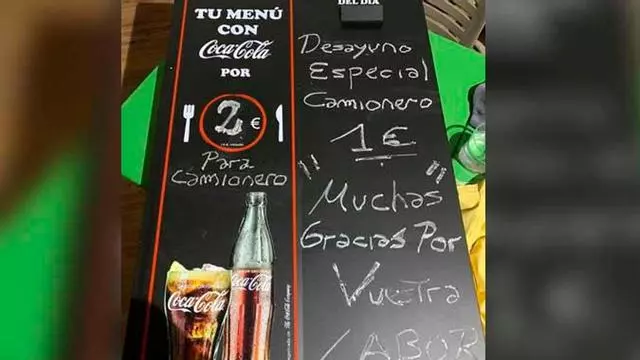 TU MENÚ
CON
Coca-Cola
POR
2 €
Para
camionero
Coca-Cola
Coca-Cola
DEL DÍA
Desayuno
Especial
Camionero
1€
"Muchas"
Gracias Por
Vuetra
LABOR